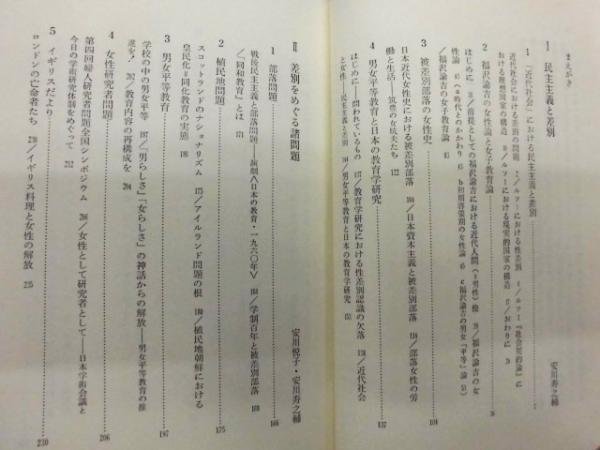 まえがき
Ⅰ 民主主義と差別 安川寿之輔
1 「近代社会」における民主主義と差別
近代社会における差別の問題 ルソーにおける性差別
における理想国家の構造 ルソーにおける現実的国家の構造 おわりに
2 福沢諭吉の女性論と女子教育論
はじめに 前提としての福沢諭吉における近代人間(=男性)像 福沢諭吉の女
性論 a時代とのかかわり b初期啓蒙期の女性論 c福沢諭吉の男女「平等」論
福沢諭吉の女子教育論
3 被差別部落の女性史 101
日本近代女性史における被差別部落 104/日本資本主義と被差別部落 部落女性の労
働と生活――筑豊の女坑夫たち 122
4 男女平等教育と日本の教育学研究 137
はじめに――問われているもの 教育学研究における性差別認識の欠落 近代社会
と女性――民主主義と差別 男女平等教育と日本の教育学研究
Ⅱ 差別をめぐる諸問題 安川悦子・安川寿之輔
1 部落問題 166
戦後民主主義と部落問題――演劇〈日本の教育・一九六〇年〉 学制百年と被差別部落 169
「同和教育」とは 171
2 植民地問題 175
スコットランドのナショナリズム 175/アイルランド問題の根 180/植民地朝鮮における
皇民化=同化教育の実態
3 男女平等教育 197
学校の中の男女平等 197/「男らしさ」「女らしさ」の神話からの解放――男女平等教育の推
進を! 教育内容の再構成を 204
4 女性研究者問題 206
第四回婦人研究者問題全国シンポジウム 206/女性として研究者として――日本学術会議と
今日の学術研究体制をめぐって 212
5 イギリスだより 220
ロンドンの亡命者たち 220/イギリス料理と女性の解放 225